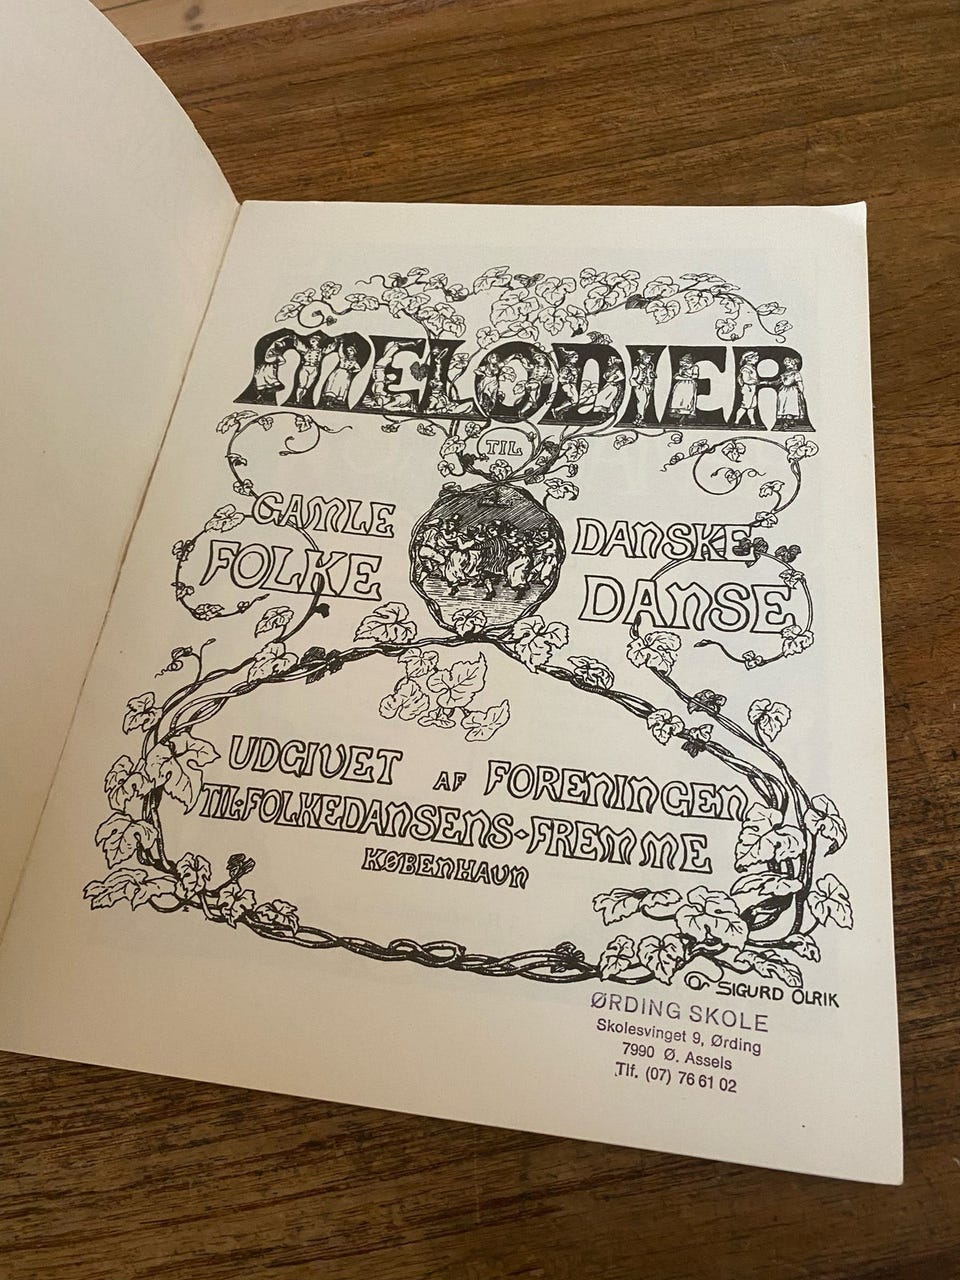 MELODIER
TIL
GAMLE DANSKE
FOLKE DANSE
UDGIVET AF FORENINGEN
TIL·FOLKEDANSENS·FREMME
KØBENHAVN
SIGURD OLRIK
ØRDING SKOLE
Skolesvinget 9, Ørding
7990 Ø. Assels
Tlf. (07) 76 61 02